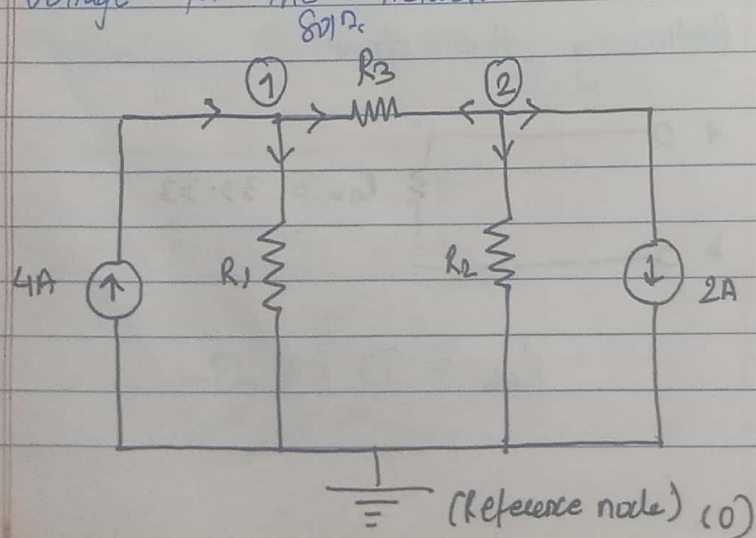 Soln.
1
R3
2
4A
R1
R2
2A
(Reference node) (0)